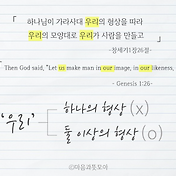 「
하나님이 가라사대 우리의 형상을 따라
우리의 모양대로 우리가 사람을 만들고
」
-창세기1장26절-
Then God said, "Let us make man in our image, in our likeness,
- Genesis 1:26-
'우리'
하나의 형상 (X)
둘 이상의 형상 (O)